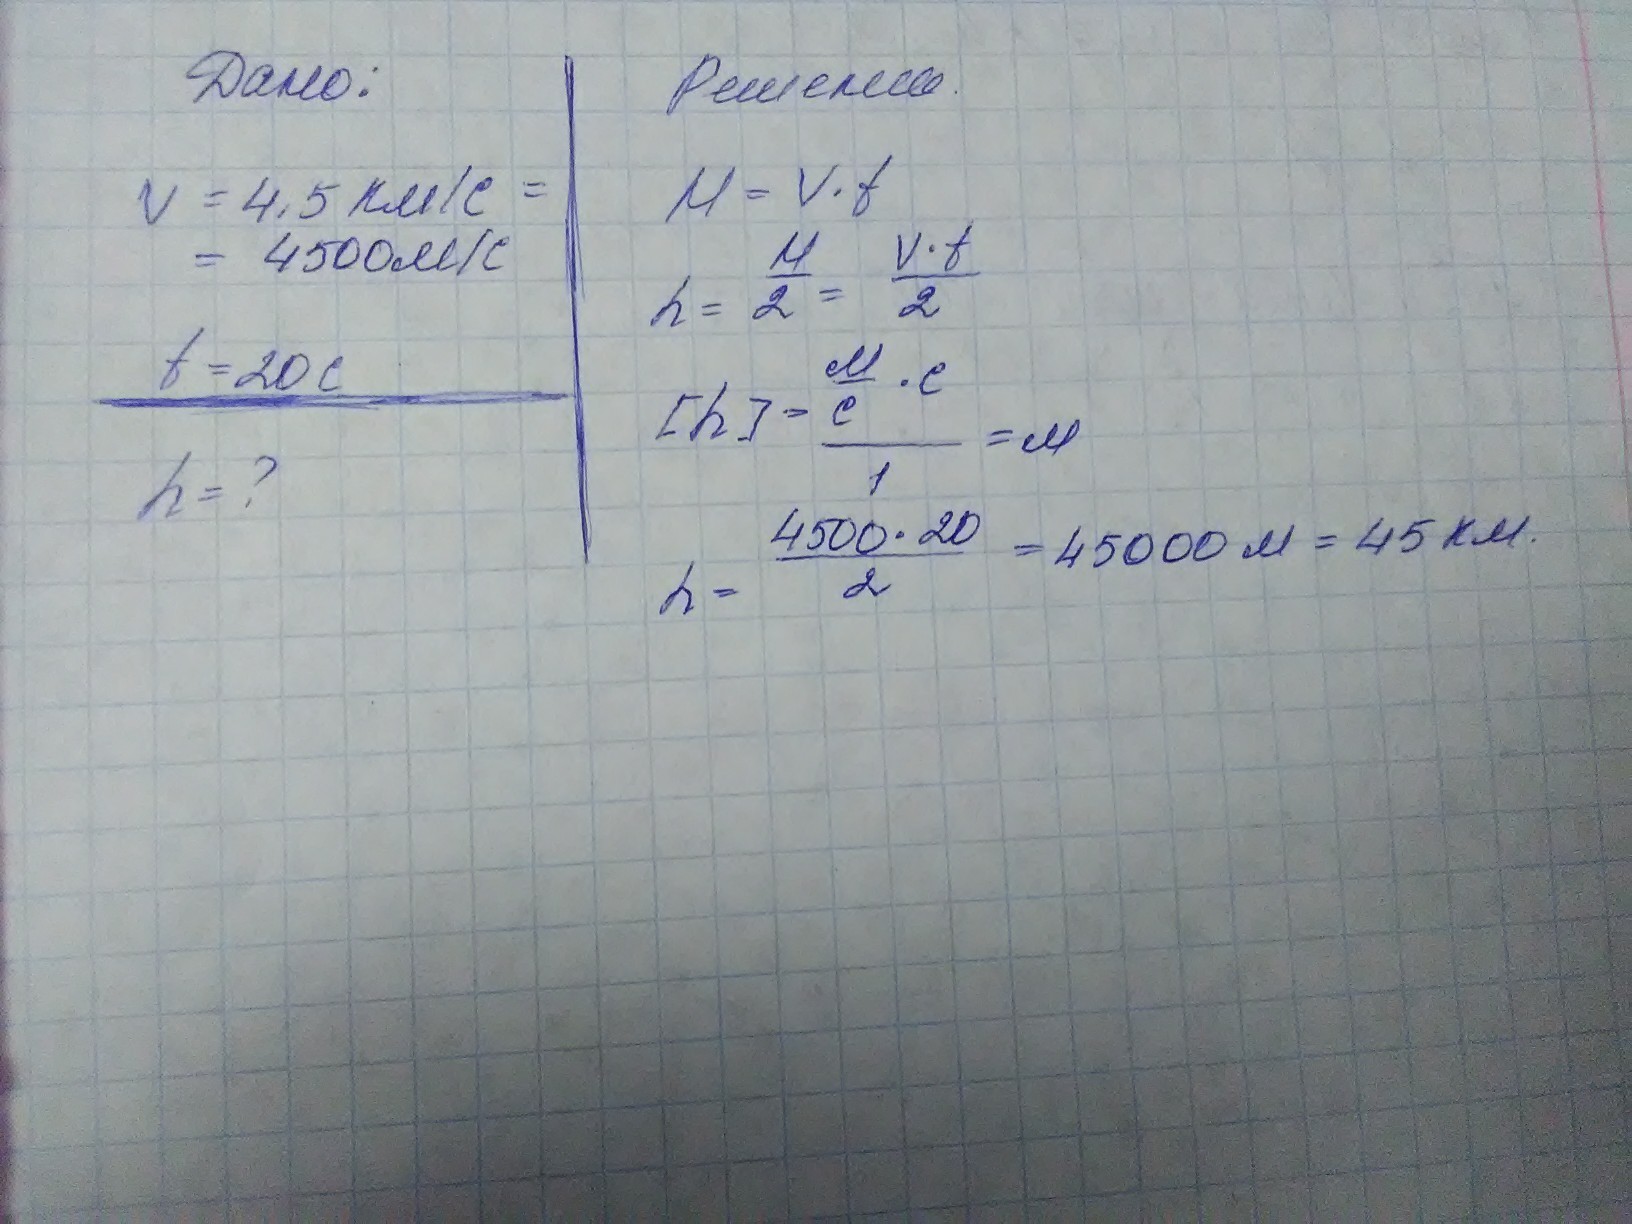 Дано:
V = 4,5 км/с =
= 4500м/с
t = 20 с
h = ?
Решение.
H = V·t
h = H/2 = V·t/2
[h] = м/с·с/1 = м
h = 4500·20/2 = 45000 м = 45 км.